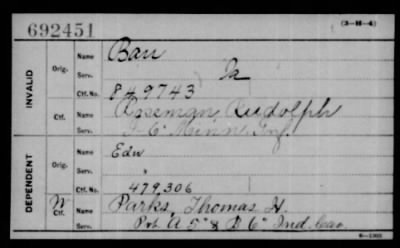 692451
(3-H-4)
INVALID
Orig.
Name Barr
Serv. Ia
Ctf. No. 849743
Ctf.
Name Roseman, Rudolph
Serv. Minn Inf
DEPENDENT
Orig.
Name Edw
Serv. "
Ctf. No. 479,306
W Ctf.
Name Parks, Thomas H.
Serv. Pvt. A 5" & B 6" Ind Cav